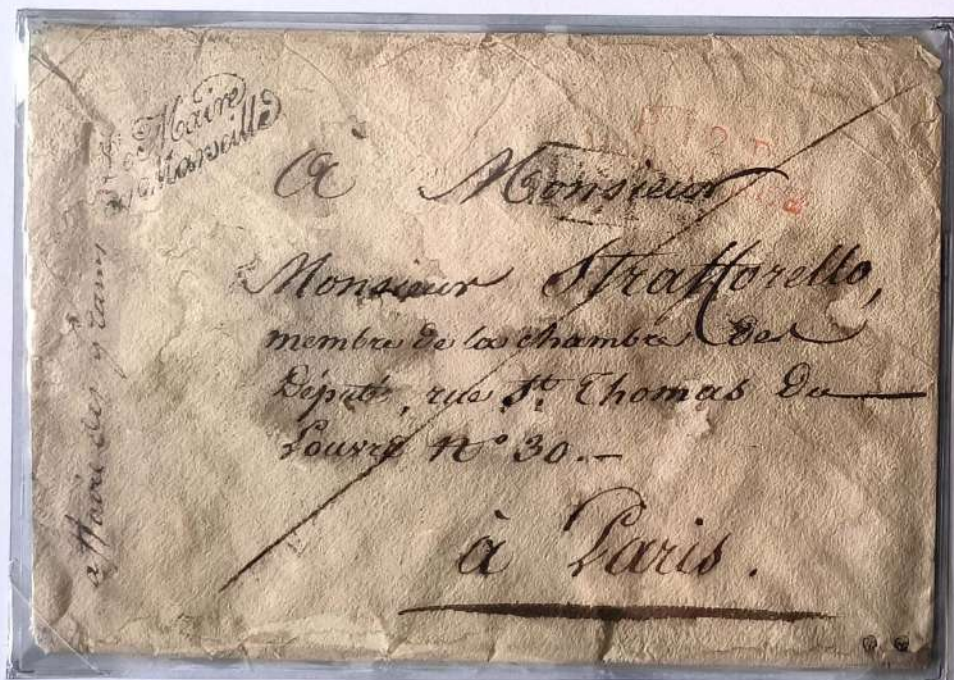 Le Maire
de Marseille
À Monsieur
Monsieur Strafforello,
membre de la chambre des
Député, rue St. Thomas du
Louvre N° 30.-
à Paris.
affaire des